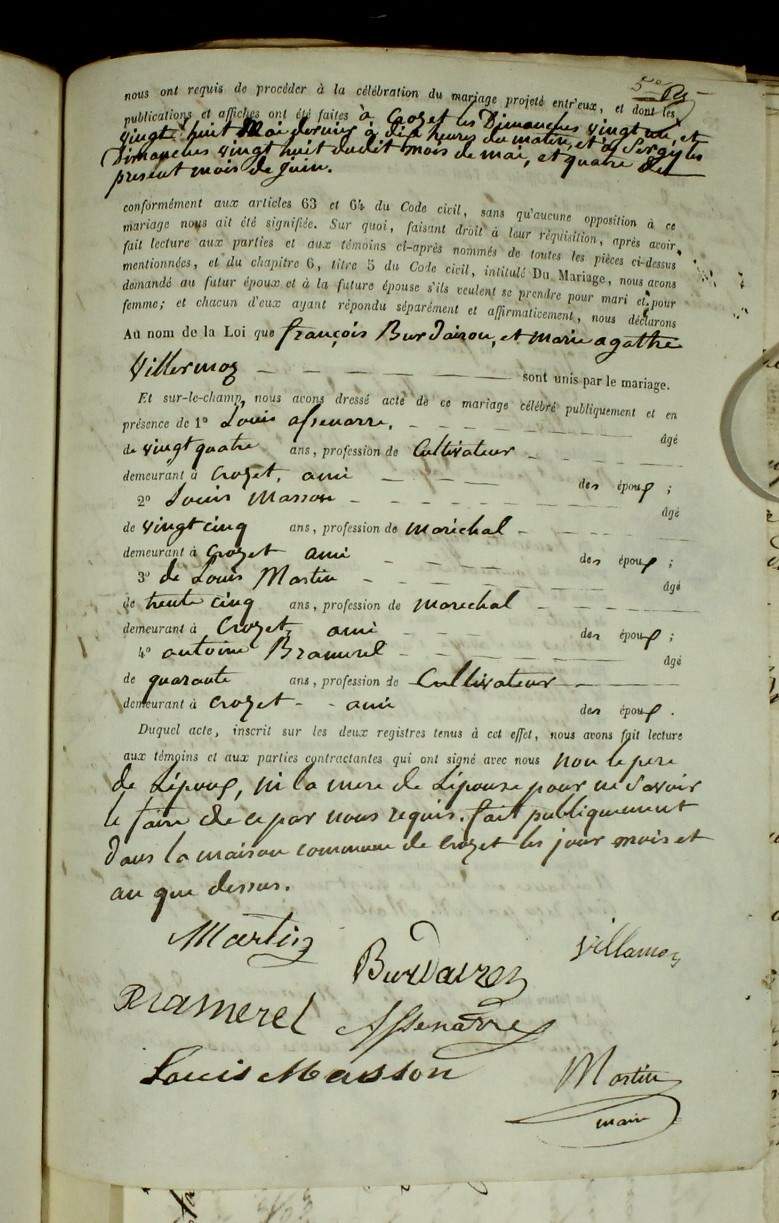 5e
nous ont requis de procéder à la célébration du mariage projeté entr'eux, et dont les
publications et affiches ont été faites à Crozet les Dimanches vingt un, et
vingt huit Mai dernier à dix heures du matin, et à Sergy les
Dimanches vingt huit dudit mois de mai, et quatre du
present mois de Juin.
conformément aux articles 63 et 64 du Code civil, sans qu'aucune opposition à ce
mariage nous ait été signifiée. Sur quoi, faisant droit à leur réquisition, après avoir
fait lecture aux parties et aux témoins ci-après nommés de toutes les pièces ci-dessus
mentionnées, et du chapitre 6, titre 5 du Code civil, intitulé Du Mariage, nous avons
demandé au futur époux et à la future épouse s'ils veulent se prendre pour mari et pour
femme; et chacun d'eux ayant répondu séparément et affirmativement, nous déclarons
Au nom de la Loi que françois Burdairon, et marie agathe
Villermoz — — — — — — — sont unis par le mariage.
Et sur-le-champ, nous avons dressé acte de ce mariage célébré publiquement et en
présence de 1° Louis assenarre, - - - - - - âgé
de vingt quatre ans, profession de Cultivateur - - - -
demeurant à Crozet, ami - - - - des époux ;
2° Louis Masson - - - - - - - âgé
de vingt cinq ans, profession de maréchal - - - -
demeurant à Crozet ami - - - - des époux ;
3° de Louis Martin - - - - - - âgé
de trente cinq ans, profession de marechal - - - -
demeurant à Crozet, ami - - - des époux ;
4° antoine Bramerel - - - - - - âgé
de quarante ans, profession de Cultivateur - - -
demeurant à crozet - - ami des époux .
Duquel acte, inscrit sur les deux registres tenus à cet effet, nous avons fait lecture
aux témoins et aux parties contractantes qui ont signé avec nous non le pere
de Lépoux, ni la mere de Lépouse pour ne Savoir
le faire de ce par nous requis. fait publiquement
dans la maison commune de Crozet les jour mois et
an que dessus.
Martin
Burdairon
Villermoz
Bramerel
Assenarre
Louis Masson
Martin
maire